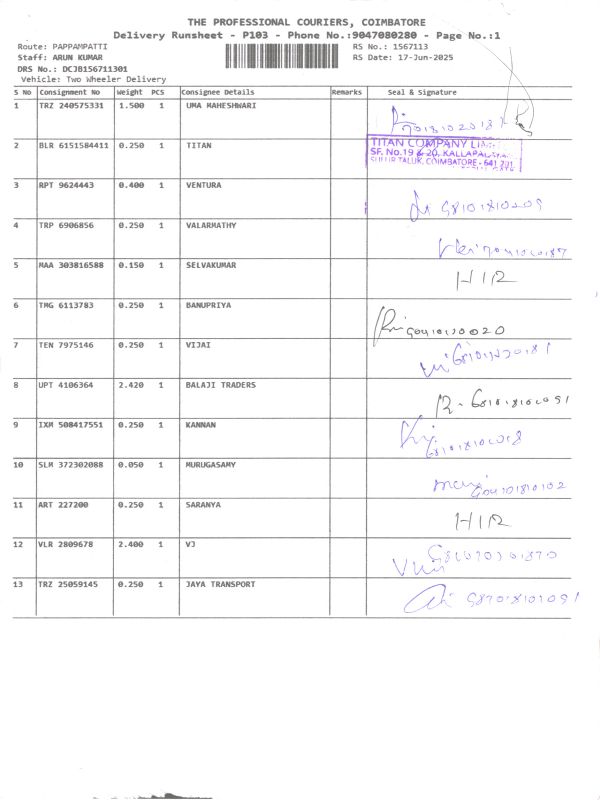 THE PROFESSIONAL COURIERS, COIMBATORE
Delivery Runsheet - P103 - Phone No.:9047080280 - Page No.:1
Route: PAPPAMPATTI RS No.: 1567113
Staff: ARUN KUMAR RS Date: 17-Jun-2025
DRS No.: DCJB156711301
Vehicle: Two Wheeler Delivery
S No Consignment No Weight PCS Consignee Details Remarks Seal & Signature
1 TRZ 240575331 1.500 1 UMA MAHESHWARI
2 BLR 6151584411 0.250 1 TITAN
TITAN COMPANY
SF. No.19 & 20, KALLAPALAYAM
SULUR TALUK, COIMBATORE - 641 201
3 RPT 9624443 0.400 1 VENTURA
4 TRP 6906856 0.250 1 VALARMATHY
5 MAA 303816588 0.150 1 SELVAKUMAR HIR
6 TMG 6113783 0.250 1 BANUPRIYA
7 TEN 7975146 0.250 1 VIJAI
8 UPT 4106364 2.420 1 BALAJI TRADERS
9 IXM 508417551 0.250 1 KANNAN
10 SLM 372302088 0.050 1 MURUGASAMY
11 ART 227200 0.250 1 SARANYA HIR
12 VLR 2809678 2.400 1 VJ
13 TRZ 25059145 0.250 1 JAYA TRANSPORT